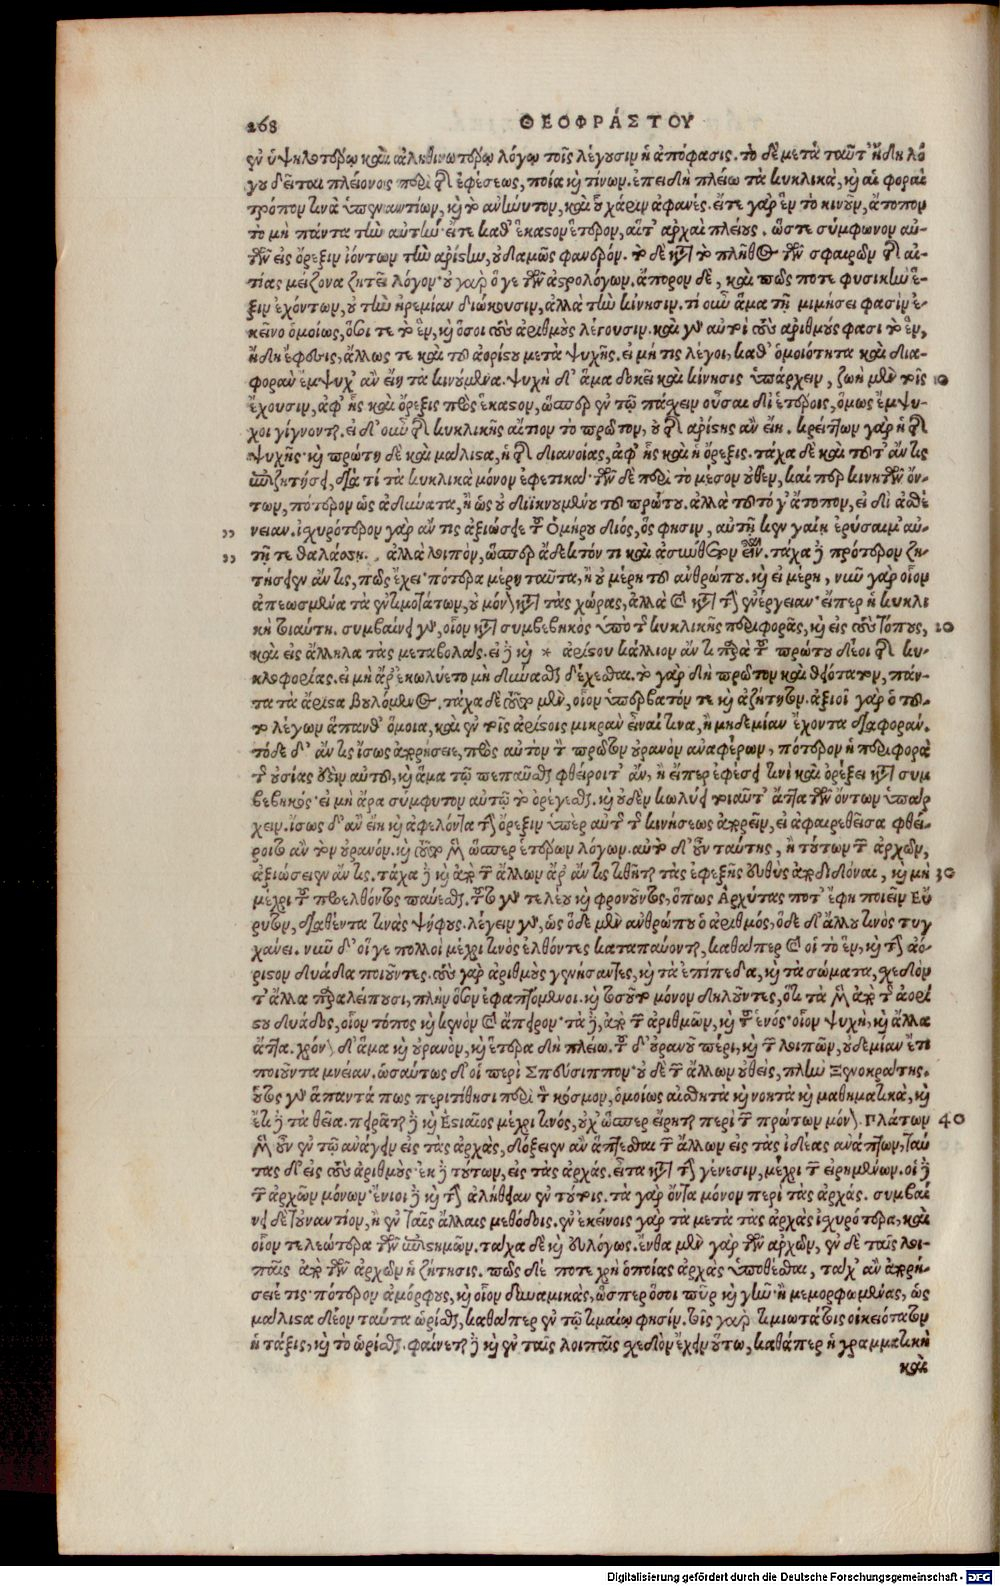 268 ΘΕΟΦΡΆΣΤΟΥ
ἐν ὑψηλοτέρῳ καὶ ἀληθινωτέρῳ λόγῳ τοῖς λέγουσιν ἡ ἀπόφασις. τὸ δὲ μετὰ ταῦτ' ἤδη λό
γου δεῖται πλέιονος περὶ τῆς ἐφέσεως, ποία καὶ τίνων. ἐπειδὴ πλείω τὰ κυκλικὰ, καὶ αἱ φοραὶ
τρόπον τινὰ ὑπεναντίων, καὶ τὸ ἀνήνυτον, καὶ οὗ χάριν ἀφανές. εἴτε γὰρ ἓν τὸ κινοῦν, ἄτοπον
τὸ μὴ πάντα τὴν αὐτήν· εἴτε καθ' ἕκαστον ἕτερον, αἵτ' ἀρχαὶ πλείους. ὥστε σύμφωνον αὐ-
τῶν εἰς ὄρεξιν ἰόντων τὴν ἀρίστην, οὐδαμῶς φανερόν. τὸ δὲ κατὰ τὸ πλῆθος τῶν σφαιρῶν τῆς αἰ-
τίας μείζονα ζητεῖ λόγον· οὐ γὰρ ὅ γε τῶν ἀστρολόγων. ἄπορον δὲ, καὶ πῶς ποτε φυσικὴν ἔ-
ξιν ἐχόντων, οὐ τὴν ἠρεμίαν διώκουσιν, ἀλλὰ τὴν κίνησιν. τί οὖν ἅμα τῇ μιμήσει φασὶν ἐ-
κεῖνο ὁμοίως, ὅσοι τε τὸ ἓν, καὶ ὅσοι τοὺς ἀριθμοὺς λέγουσιν. καὶ γὰρ αὐτοὶ τοὺς ἀριθμούς φασι τὸ ἓν,
ἤδη ἔφεσις, ἄλλως τε καὶ τοῦ ἀρίστου μετὰ ψυχῆς. εἰ μή τις λέγοι, καθ' ὁμοιότητα καὶ δια-
φορὰν ἔμψυχ' ἂν εἴη τὰ κινούμενα. ψυχῇ δ' ἅμα δοκεῖ καὶ κίνησις ὑπάρχειν, ζωὴ μὲν τοῖς 10
ἔχουσιν, ἀφ' ἧς καὶ ὄρεξις πρὸς ἕκαστον, ὥσπερ ἐν τῷ πάσχειν οὖσαι δι' ἑτέροις, ὅμως ἔμψυ-
χοι γίγνονται. εἰ δ' οὖν τῆς κυκλικῆς αἴτιον τὸ πρῶτον, οὐ τῆς ἀρίστης ἂν εἴη. κρεῖττων γὰρ ἡ τῆς
ψυχῆς· καὶ πρώτη δὲ καὶ μάλιστα, ἡ τῆς διανοίας, ἀφ' ἧς καὶ ἡ ὄρεξις. τάχα δὲ καὶ τοῦτ' ἄν τις
ἐπιζητήσει, διὰ τί τὰ κυκλικὰ μόνον ἐφετικά· τῶν δὲ περὶ τὸ μέσον οὐθὲν, καίπερ κινητῶν ὄν-
των, πότερον ὡς ἀδύνατα, ἢ ὡς οὐ διϊκνουμένου τοῦ πρώτου. ἀλλὰ τοῦτό γ' ἄτοπον, εἰ δι' ἀσθέ
,, νειαν. ἰσχυρότερον γὰρ ἄν τις ἀξιώσειε τοῦ Ὁμήρου διὸς, ὅς φησιν, αὐτῇ κεν γαίῃ ἐρύσαιμ' αὐ-
,, τῇ τε θαλάσσῃ. ἀλλὰ λοιπὸν, ὥσπερ ἄδεκτόν τι καὶ ἀσύνθετον εἶναι. τάχα δὲ πρότερον ζη-
τήσειεν ἄν τις, πῶς ἔχει· πότερα μέρη ταῦτα, ἢ οὐ μέρη τοῦ ἀνθρώπου. καὶ εἰ μέρη, νῦν γὰρ οἷον
ἀπεωσμένα τὰ ἐντιμοτάτων, οὐ μόνον κατὰ τὰς χώρας, ἀλλὰ καὶ κατὰ τὴν ἐνέργειαν· εἴπερ ἡ κυκλι
κὴ τοιαύτη. συμβαίνει γὰρ, οἷον κατὰ συμβεβηκὸς ὑπὸ τῆς κυκλικῆς περιφορᾶς, καὶ εἰς τοὺς τόπους, 20
καὶ εἰς ἄλληλα τὰς μεταβολάς. εἰ δὲ καὶ * ἀρίστου κάλλιον ἄν τι παρὰ τοῦ πρώτου δέοι τῆς κυ-
κλοφορίας. εἰ μὴ ἄρ' ἐκωλύετο μὴ δύνασθαι δέχεσθαι. τὸ γὰρ δὴ πρῶτον καὶ θειότατον, πάν-
τα τὰ ἄριστα βουλόμενος. τάχα δὲ τοῦτο μὲν, οἷον ὑπερβατόν τε καὶ ἀζήτητον. ἀξιοῖ γὰρ ὁ τοῦ-
το λέγων ἅπανθ' ὅμοια, καὶ ἐν τοῖς ἀρίστοις μικρὰν εἶναί τινα, ἢ μηδεμίαν ἔχοντα διαφοράν.
τόδε δ' ἄν τις ἴσως ἀπορήσειε, πρὸς αὐτὸν τὸν πρῶτον οὐρανὸν ἀναφέρων, πότερον ἡ περιφορὰ
τῆς οὐσίας οὐδὲν αὐτοῦ, καὶ ἅμα τῷ πεπαῦσθαι φθείροιτ' ἄν, ἢ εἴπερ ἐφέσει τινὶ καὶ ὀρέξει κατὰ συμ
βεβηκός· εἰ μὴ ἄρα σύμφυτον αὐτῷ τὸ ὀρέγεσθαι. καὶ οὐδὲν κωλύει τοιαῦτ' ἄττα τῶν ὄντων ὑπάρ
χειν. ἴσως δ' ἂν εἴη καὶ ἀφελόντα τὴν ὄρεξιν ὑπὲρ αὐτῆς τῆς κινήσεως ἀπορεῖν, εἰ ἀφαιρεθεῖσα φθεί-
ροιτο ἂν τὸν οὐρανόν. καὶ τοῦτο μὲν ὥσπερ ἑτέρων λόγων. αὐτὸ δ' οὖν ταύτης, ἢ τούτων τῶν ἀρχῶν,
ἀξιώσειεν ἄν τις. τάχα δὲ καὶ ἀπὸ τῶν ἄλλων ἄρ' ἄν τις τιθῆται τὰς ἐφεξῆς εὐθὺς ἀποδιδόναι, καὶ μὴ 30
μέχρι τοῦ προελθόντος παύεσθαι. τοῦτο γὰρ τελέου καὶ φρονοῦντος, ὅπως Ἀρχύτας ποτ' ἔφη ποιεῖν Εὔ
ρυτον, διαθέντα τινὰς ψήφους. λέγειν γὰρ, ὡς ὅδε μὲν ἀνθρώπου ὁ ἀριθμὸς, ὅδε δ' ἄλλου τινὸς τυγ
χάνει. νῦν δ' οἵ γε πολλοὶ μέχρι τινὸς ἐλθόντες καταπαύονται, καθάπερ καὶ οἱ τὸ ἓν, καὶ τὴν ἀό-
ριστον δυάδα ποιοῦντες. τοὺς γὰρ ἀριθμοὺς γεννήσαντες, καὶ τὰ ἐπίπεδα, καὶ τὰ σώματα, σχεδὸν
τ' ἄλλα παραλείπουσι, πλὴν ὅσον ἐφαπτόμενοι. καὶ τοσοῦτο μόνον δηλοῦντες, ὅτι τὰ μὲν ἀπὸ τῆς ἀορί
στου δυάδος, οἷον τόπος καὶ κενὸν καὶ ἄπειρον· τὰ δὲ, ἀπὸ τῶν ἀριθμῶν, καὶ τοῦ ἑνός· οἷον ψυχὴ, καὶ ἄλλα
ἄττα. χρόνον δ' ἅμα καὶ οὐρανὸν, καὶ ἕτερα δὴ πλείω. τοῦ δ' οὐρανοῦ πέρι, καὶ τῶν λοιπῶν, οὐδεμίαν ἔτι
ποιοῦνται μνείαν. ὡσαύτως δ' οἱ περὶ Σπεύσιππον· οὐδὲ τῶν ἄλλων οὐθεὶς, πλὴν Ξενοκράτης.
οὗτος γὰρ ἅπαντά πως περιτίθησι περὶ τὸν κόσμον, ὁμοίως αἰσθητὰ καὶ νοητὰ καὶ μαθηματικὰ, καὶ
ἔτι δὲ τὰ θεῖα. πειρᾶται δὲ καὶ Ἑστιαῖος μέχρι τινὸς, οὐχ' ὥσπερ εἴρηται περὶ τῶν πρώτων μόνον. Πλάτων 40
μὲν οὖν ἐν τῷ ἀνάγειν εἰς τὰς ἀρχὰς, δόξειεν ἂν ἅπτεσθαι τῶν ἄλλων εἰς τὰς ἰδέας ἀνάπτων, ταύ
τας δ' εἰς τοὺς ἀριθμοὺς· ἐκ δὲ τούτων, εἰς τὰς ἀρχάς. εἶτα κατὰ τὴν γένεσιν, μέχρι τῶν εἰρημένων. οἱ δὲ
τῶν ἀρχῶν μόνων· ἔνιοι δὲ καὶ τὴν ἀλήθειαν ἐν τούτοις. τὰ γὰρ ὄντα μόνον περὶ τὰς ἀρχάς. συμβαί
νει δὲ τοὐναντίον, ἢ ἐν ταῖς ἄλλαις μεθόδοις. ἐν ἐκείνοις γὰρ τὰ μετὰ τὰς ἀρχὰς ἰσχυρότερα, καὶ
οἷον τελεώτερα τῶν ἐπιστημῶν. τάχα δὲ καὶ εὐλόγως. ἔνθα μὲν γὰρ τῶν ἀρχῶν, ἐν δὲ ταῖς λοι-
παῖς ἀπὸ τῶν ἀρχῶν ἡ ζήτησις. πῶς δέ ποτε χρὴ ὁποίας ἀρχὰς ὑποθέσθαι, τάχ' ἂν ἀπορή-
σειέ τις· πότερον ἀμόρφους, καὶ οἷον δυναμικὰς, ὥσπερ ὅσοι πῦρ καὶ γῆν· ἢ μεμορφωμένας, ὡς
μάλιστα δέον ταύτα ὡρίσθαι, καθάπερ ἐν τῷ τιμαίῳ φησίν. τοῖς γὰρ τιμιωτάτοις οἰκειότατον
ἡ τάξις, καὶ τὸ ὡρίσθαι. φαίνεται δὲ καὶ ἐν ταῖς λοιπαῖς σχεδὸν ἔχειν οὕτω, καθάπερ ἡ γραμματικὴ
καὶ
Digitalisierung gefördert durch die Deutsche Forschungsgemeinschaft - DFG